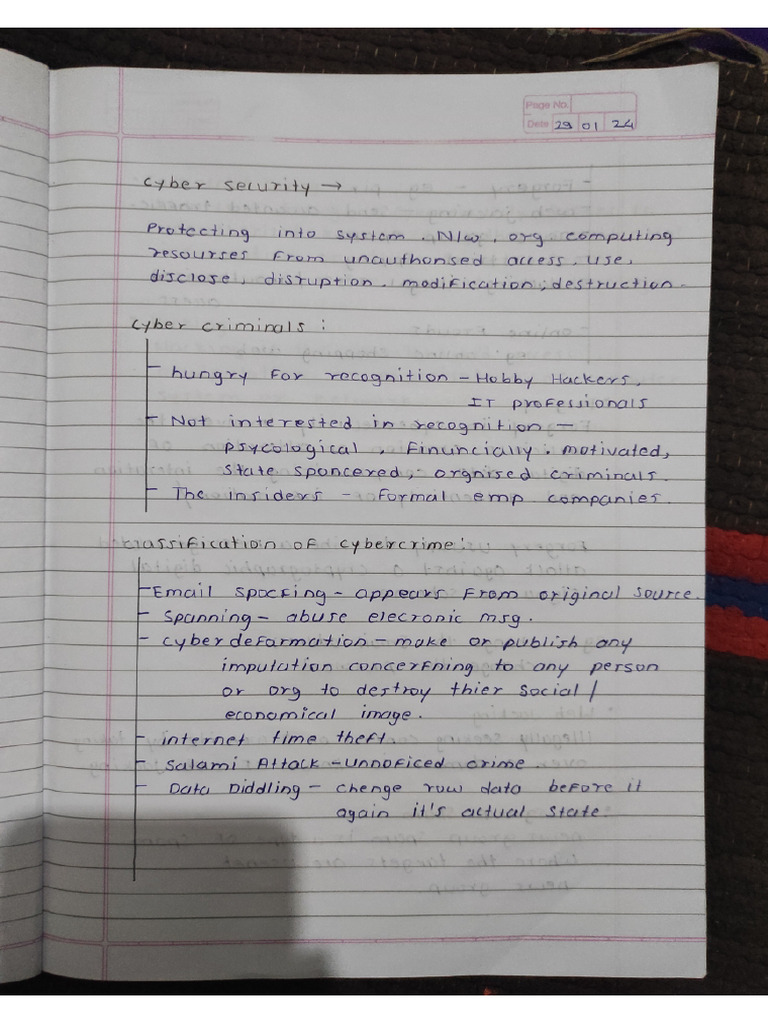 Page No.
Date 29 01 24
Cyber security →
Protecting into system, N/w, org computing
resourses from unauthorised access, use,
disclose, disruption, modification, destruction.
Cyber criminals :
- hungry for recognition - Hobby Hackers,
IT professionals
- Not interested in recognition -
psycological, Finuncially, motivated,
state sponcered, orgnised criminals.
- The insiders - formal emp companies.
classification of cybercrime :
- Email spocfing - appears from original source.
- Spanning - abuse elecronic msg.
- cyberdeformation - make or publish any
imputation concerfning to any person
or org to destroy thier social /
economical image.
- internet time theft.
- Salami Attack - unnoficed crime.
- Data Diddling - chenge row data before it
again it's actual state.